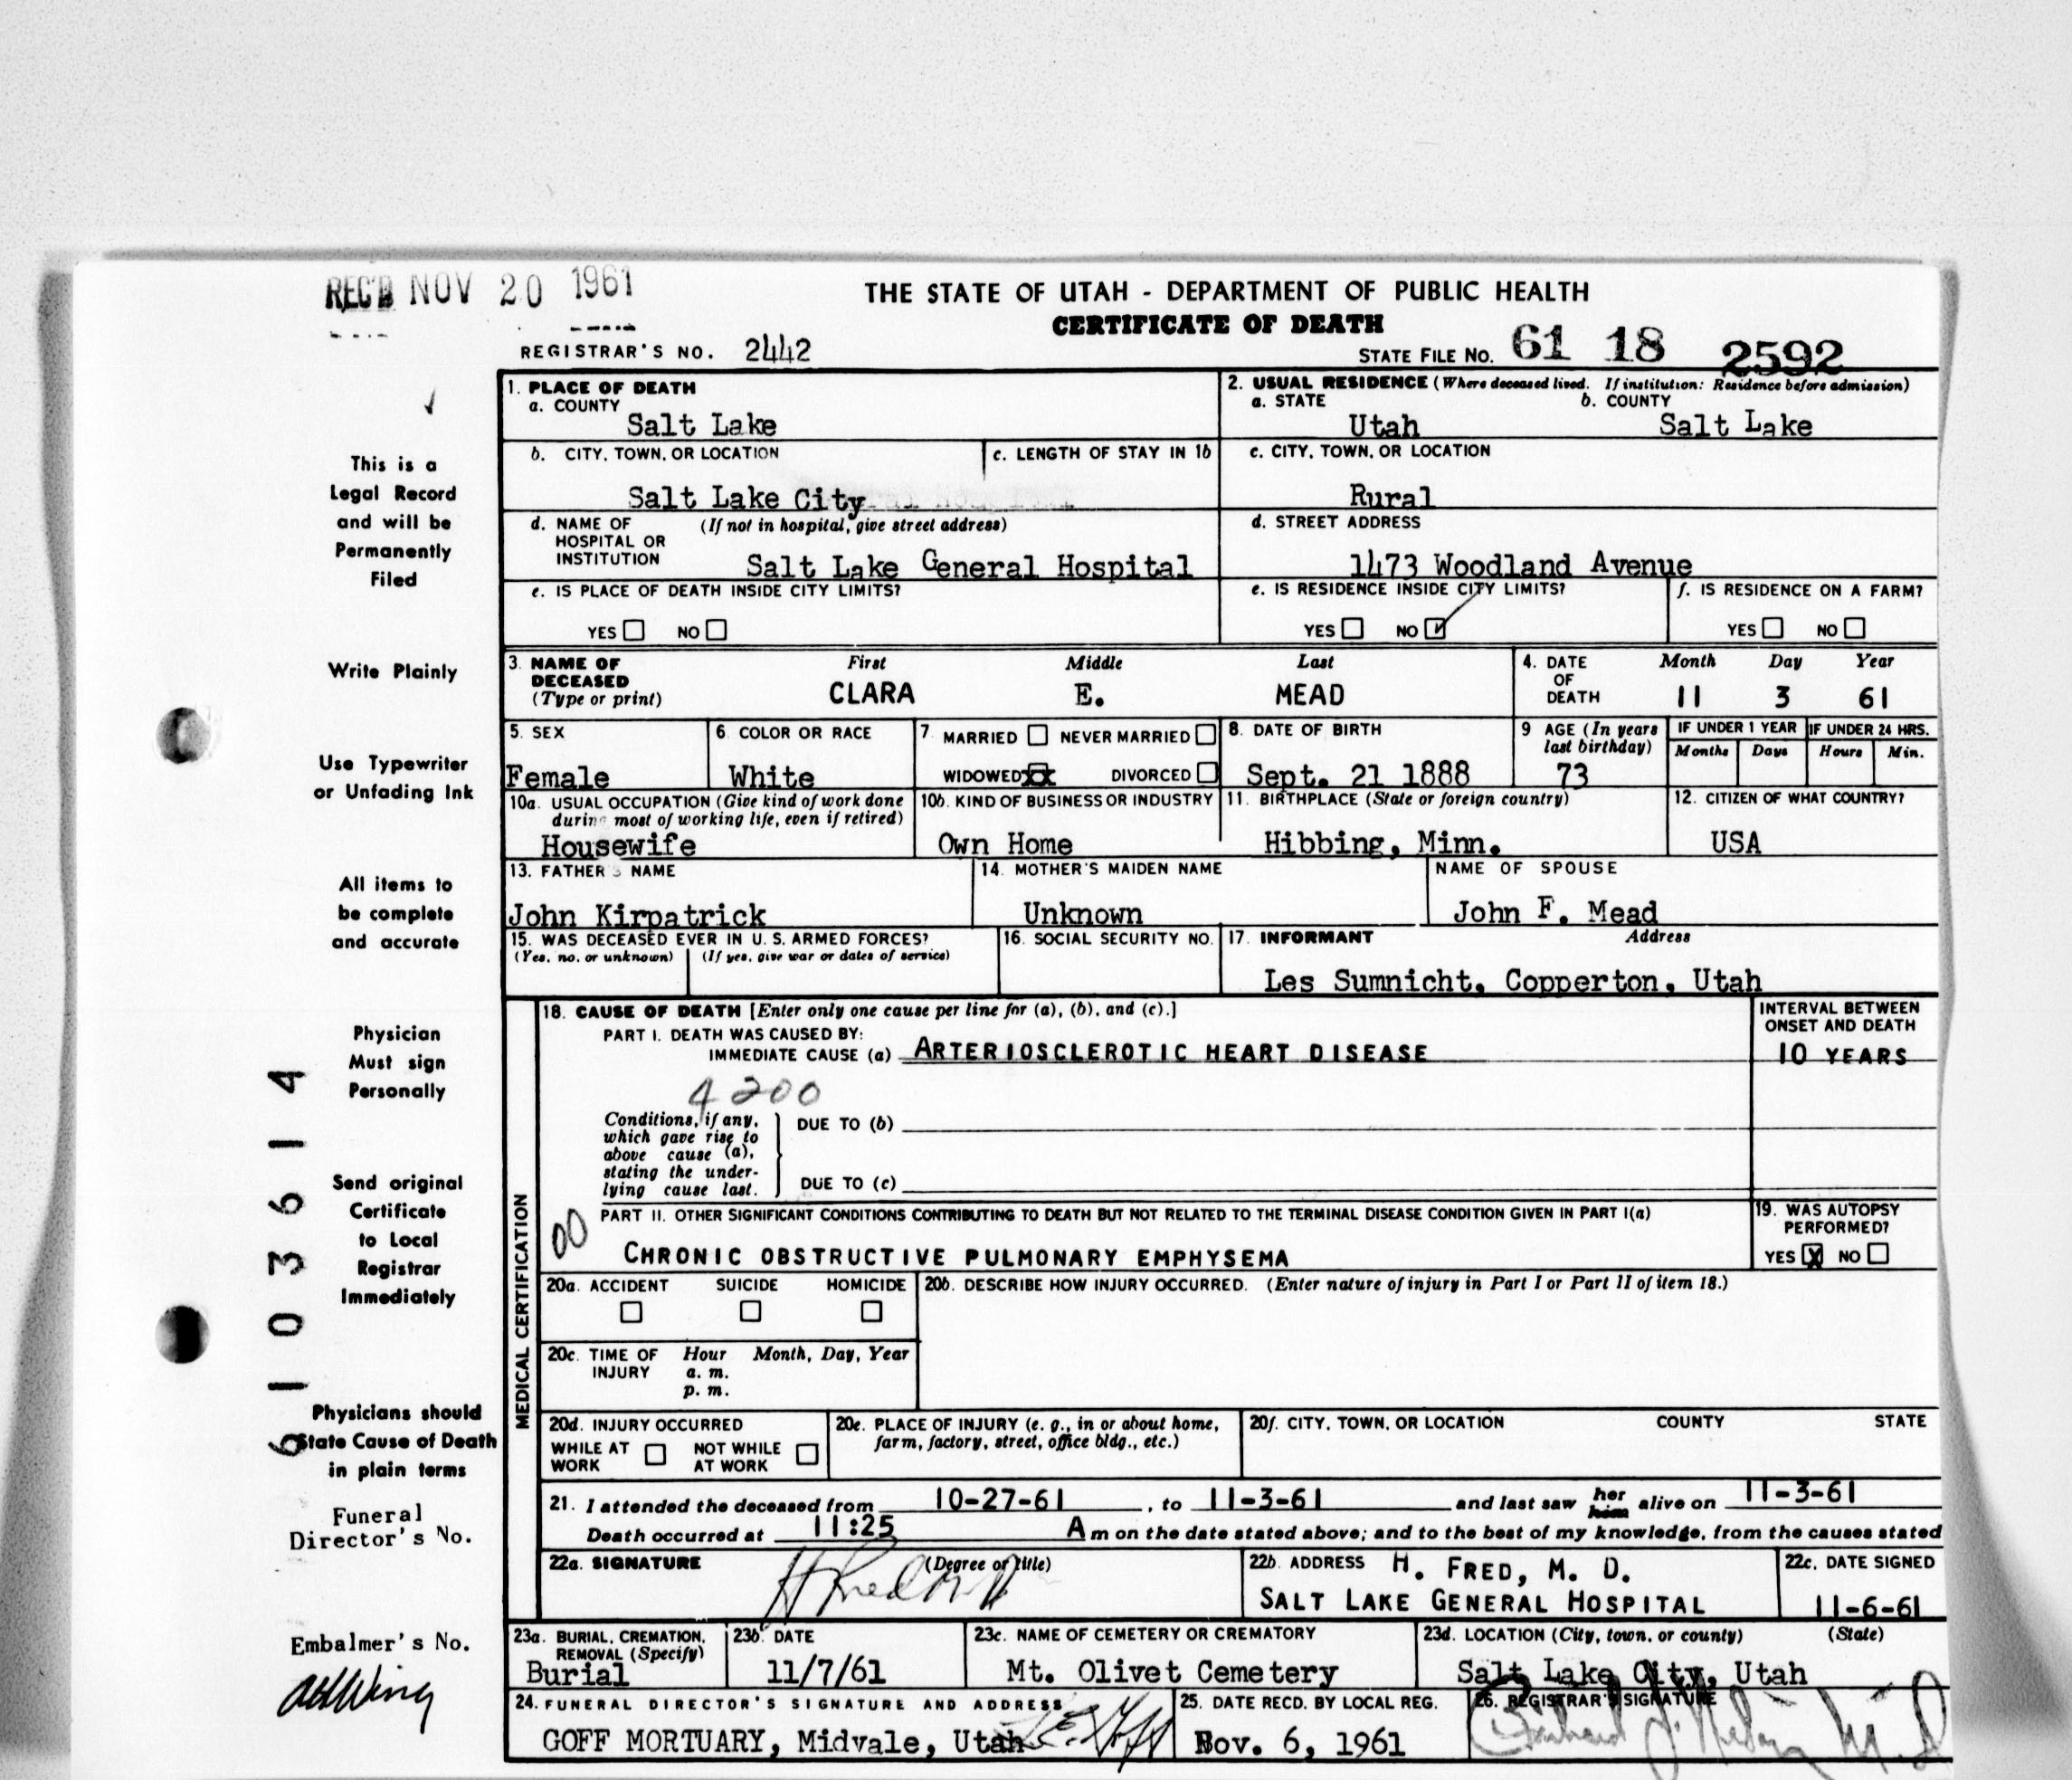 REC'D NOV 20 1961
THE STATE OF UTAH - DEPARTMENT OF PUBLIC HEALTH
CERTIFICATE OF DEATH
REGISTRAR'S NO. 2442
STATE FILE NO. 61 18 2592
This is a
Legal Record
and will be
Permanently
Filed
Write Plainly
Use Typewriter
or Unfading Ink
All items to
be complete
and accurate
Physician
Must sign
Personally
Send original
Certificate
to Local
Registrar
Immediately
Physicians should
State Cause of Death
in plain terms
Funeral
Director's No.
Embalmer's No.
6103614
1. PLACE OF DEATH
a. COUNTY
Salt Lake
2. USUAL RESIDENCE (Where deceased lived. If institution: Residence before admission)
a. STATE b. COUNTY
Utah Salt Lake
b. CITY, TOWN, OR LOCATION
Salt Lake City
c. LENGTH OF STAY IN 1b
c. CITY, TOWN, OR LOCATION
Rural
d. NAME OF (If not in hospital, give street address)
HOSPITAL OR
INSTITUTION Salt Lake General Hospital
d. STREET ADDRESS
1473 Woodland Avenue
e. IS PLACE OF DEATH INSIDE CITY LIMITS?
YES NO
e. IS RESIDENCE INSIDE CITY LIMITS?
YES NO
f. IS RESIDENCE ON A FARM?
YES NO
3. NAME OF First Middle Last
DECEASED
(Type or print) CLARA E. MEAD
4. DATE Month Day Year
OF
DEATH 11 3 61
5. SEX
Female
6. COLOR OR RACE
White
7. MARRIED NEVER MARRIED
WIDOWED XX DIVORCED
8. DATE OF BIRTH
Sept. 21 1888
9 AGE (In years
last birthday)
73
IF UNDER 1 YEAR IF UNDER 24 HRS.
Months Days Hours Min.
10a. USUAL OCCUPATION (Give kind of work done
during most of working life, even if retired)
Housewife
10b. KIND OF BUSINESS OR INDUSTRY
Own Home
11. BIRTHPLACE (State or foreign country)
Hibbing, Minn.
12. CITIZEN OF WHAT COUNTRY?
USA
13. FATHER'S NAME
John Kirpatrick
14. MOTHER'S MAIDEN NAME
Unknown
NAME OF SPOUSE
John F. Mead
15. WAS DECEASED EVER IN U. S. ARMED FORCES?
(Yes, no, or unknown) (If yes, give war or dates of service)
16. SOCIAL SECURITY NO.
17. INFORMANT Address
Les Sumnicht, Copperton, Utah
MEDICAL CERTIFICATION
18. CAUSE OF DEATH [Enter only one cause per line for (a), (b), and (c).]
PART I. DEATH WAS CAUSED BY:
IMMEDIATE CAUSE (a) ARTERIOSCLEROTIC HEART DISEASE
INTERVAL BETWEEN
ONSET AND DEATH
10 YEARS
4200
Conditions, if any,
which gave rise to
above cause (a),
stating the under-
lying cause last.
DUE TO (b)
DUE TO (c)
00
PART II. OTHER SIGNIFICANT CONDITIONS CONTRIBUTING TO DEATH BUT NOT RELATED TO THE TERMINAL DISEASE CONDITION GIVEN IN PART I(a)
CHRONIC OBSTRUCTIVE PULMONARY EMPHYSEMA
19. WAS AUTOPSY
PERFORMED?
YES X NO
20a. ACCIDENT SUICIDE HOMICIDE
20b. DESCRIBE HOW INJURY OCCURRED. (Enter nature of injury in Part I or Part II of item 18.)
20c. TIME OF Hour Month, Day, Year
INJURY a. m.
p. m.
20d. INJURY OCCURRED
WHILE AT NOT WHILE
WORK AT WORK
20e. PLACE OF INJURY (e. g., in or about home,
farm, factory, street, office bldg., etc.)
20f. CITY, TOWN, OR LOCATION COUNTY STATE
21. I attended the deceased from 10-27-61, to 11-3-61 and last saw her him alive on 11-3-61
Death occurred at 11:25 A m on the date stated above; and to the best of my knowledge, from the causes stated
22a. SIGNATURE (Degree or title)
H Fred M D
22b. ADDRESS H. FRED, M. D.
SALT LAKE GENERAL HOSPITAL
22c. DATE SIGNED
11-6-61
23a. BURIAL, CREMATION,
REMOVAL (Specify)
Burial
23b. DATE
11/7/61
23c. NAME OF CEMETERY OR CREMATORY
Mt. Olivet Cemetery
23d. LOCATION (City, town, or county) (State)
Salt Lake City, Utah
24. FUNERAL DIRECTOR'S SIGNATURE AND ADDRESS
GOFF MORTUARY, Midvale, Utah
25. DATE RECD. BY LOCAL REG.
Nov. 6, 1961
26. REGISTRAR'S SIGNATURE